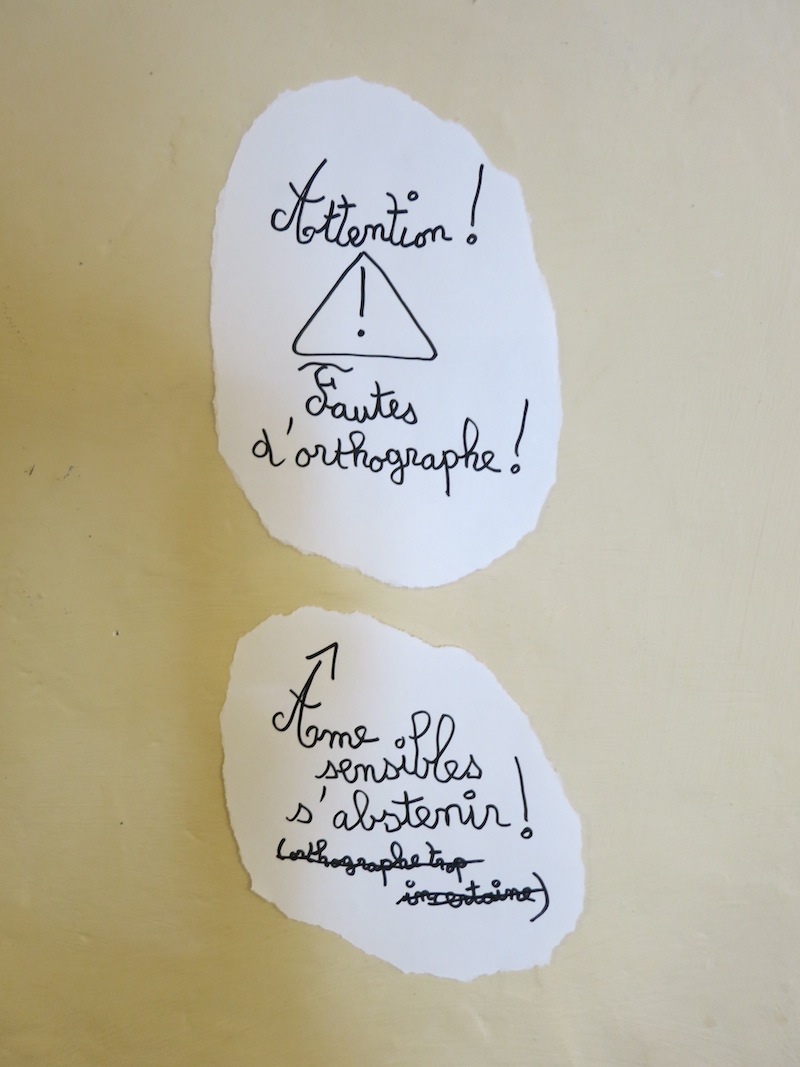 Attention !
!
Fautes
d'orthographe !
Âme
sensibles
s'abstenir !
(orthographe trop
incertaine)